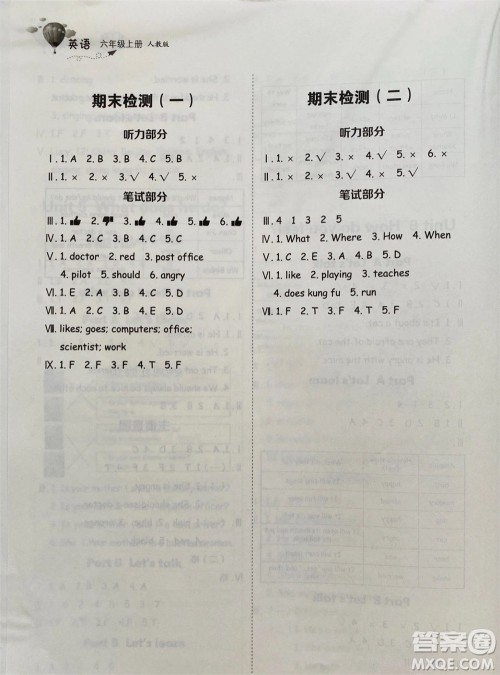 英语 六年级上册 人教版
期末检测（一）
听力部分
Ⅰ. 1. A 2. B 3. B 4. C 5. B
Ⅱ. 1. × 2. × 3. √ 4. × 5. √
笔试部分
Ⅲ. 1. 👍 2. 👎 3. 👍 4. 👍 5. 👍 6. 👍
Ⅳ. 1. C 2. B 3. A 4. B 5. C
Ⅴ. 1. doctor 2. red 3. post office
4. pilot 5. should 6. angry
Ⅵ. 1. E 2. A 3. B 4. C 5. D
Ⅶ. 1. B 2. D 3. A 4. C 5. D
Ⅷ. likes; goes; computers; office;
scientist; work
Ⅸ. 1. F 2. F 3. F 4. T 5. F
期末检测（二）
听力部分
Ⅰ. 1. × 2. √ 3. √ 4. × 5. × 6. ×
Ⅱ. 1. × 2. √ 3. √ 4. × 5. √
笔试部分
Ⅲ. 4 1 3 2 5
Ⅳ. 1. What 2. Where 3. How 4. When
Ⅴ. 1. like 2. playing 3. teaches
4. does kung fu 5. run
Ⅵ. 1. T 2. F 3. F 4. T 5. F
答案圈
MXQE.COM